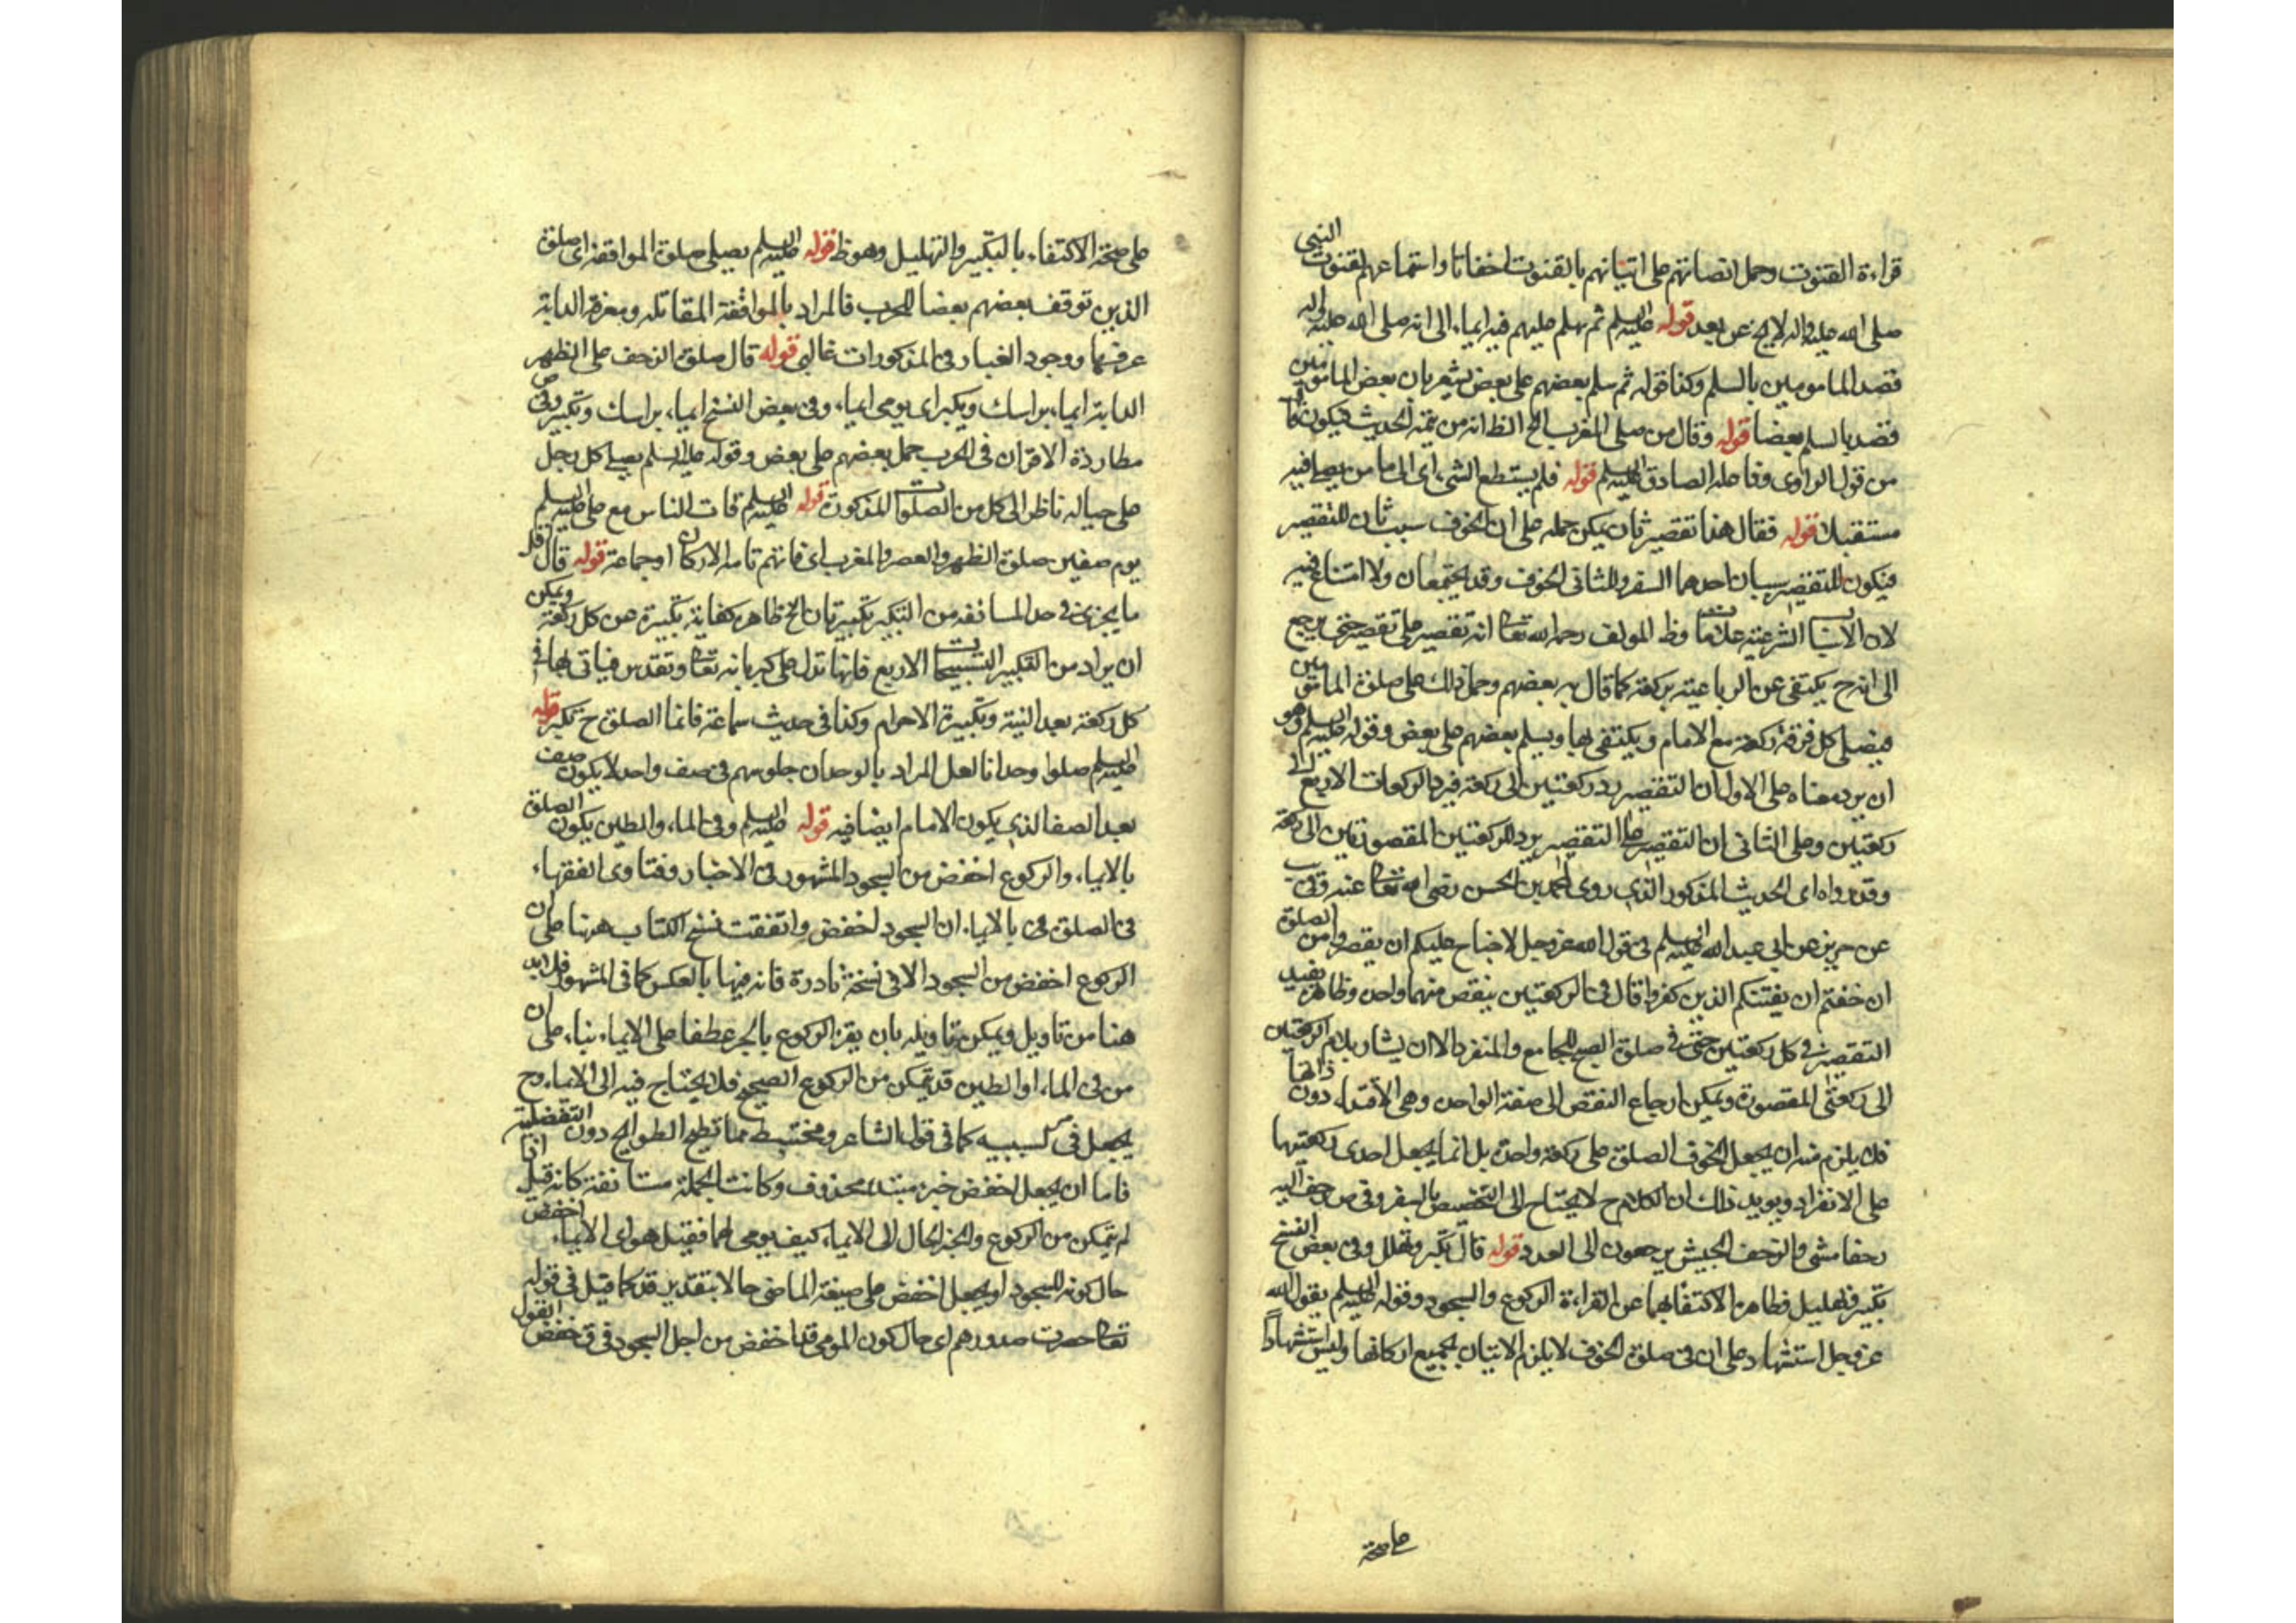 قراءة القنوت وحمل انصاتهم على اتيانهم بالقنوت اخفاتا واستماعهم لقنوت النبي
صلى الله عليه واله لا يخ عن بعد قوله عليه السلم ثم يسلم عليهم فيه ايماء الى انه صلى الله عليه واله
قصد المامومين بالسلم وكذا قوله ثم سلم بعضهم على بعض يشعر بان بعض المامومين
قصد بالسلم بعضا قوله وقال من صلى المغرب الخ الظ انه من تتمة الحديث فيكون
من قول الراوى وفاعله الصادق عليه السلم قوله فلم يستطع الشى اى الى ما من يصلى فيه
مستقبلا قوله فقال هذا تقصير ثان يمكن حمله على ان الخوف سبب ثان للتقصير
فيكون للتقصير سببان احدهما السفر والثانى الخوف وقد يجتمعان ولا امتناع فيه
لان الاسباب الشرعية علامات وظ المولف رحمه الله تعا انه تقصير على تقصير حتى يرجع
الى انه ح يكتفى عن الرباعية بركعة كما قال به بعضهم وحمل ذلك على صلوة المامومين
فيصلى كل فرقة ركعة مع الامام ويكتفى بها ويسلم بعضهم على بعض وقوله عليه السلم وهو
ان يرد معناه على الاول ان التقصير رد ركعتين الى ركعة فيرد الركعات الاربع الى
ركعتين وعلى الثانى ان التقصير على التقصير يرد للركعتين المقصورتين الى ركعة
وقد رواه اى الحديث المذكور الذى روى محمد بن الحسن رضى الله تعا عنه وفى يب
عن حريز عن ابى عبد الله عليه السلم فى قول الله عز وجل لا جناح عليكم ان يقصروا من الصلوة
ان خفتم ان يفتنكم الذين كفروا قال فى الركعتين ينقص منهما واحدة وظاهره يفيد
التقصير فى كل ركعتين حتى فى صلوة الصبح للجامع والمنفرد الا ان يشار بلام الركعتين
الى ركعتى المقصورة ويمكن ارجاع النقص الى صفة الواحدة وهى الاقتداء دون ذاتها
فلا يلزم منه ان يجعل الخوف الصلوة على ركعة واحدة بل انما يجعل احدى ركعتيها
على الانفراد ويويد ذلك ان الكلام ح لا يحتاج الى التخصيص بالسفر وفى ص زحف اليه
زحفا مشى والزحف الجيش يزحفون الى العدو قوله قال تكبر وتهلل وفى بعض النسخ
تكبير وتهليل فظاهره الاكتفا بهما عن القراءة الركوع والسجود وقوله عليه السلم يقول الله
عز وجل استشهاد على ان فى صلوة الخوف لا يلزم الاتيان بجميع اركانها وليس استشهادا
على صحة
على صحة الاكتفاء بالتكبير والتهليل وهو ظ قوله عليه السلم يصلى صلوة الموافقة اى صلوة
الذين توقف بعضهم بعضا للحرب فالمراد بالموافقة المقاتلة ومعرفة الدابة
عرفها ووجود الغبار فى المذكورات غالبى قوله قال صلوة الزحف على الظهر
الدابة ايماء براسك ويكبر اى يومى ايماء وفى بعض النسخ ايماء براسك وتكبير وفى ص
مطاردة الاقران فى الحرب حمل بعضهم على بعض وقوله عليه السلم يصلى كل رجل
على حياله ناظر الى كل من الصلوات المذكورة قوله عليه السلم فات الناس مع على عليه السلم
يوم صفين صلوة الظهر والعصر والمغرب اى فاتهم تامة الاركان او جماعة قوله قال اقل
ما يجزى فى حد المسائفة من التكبير تكبيرتان الخ ظاهره كفاية تكبيرة عن كل ركعة ويمكن
ان يراد من التكبير التسبيحات الاربع فانها تدل على كبريائه تعا وتقديس فياتى بها فى
كل ركعة بعد النية وتكبيرة الاحرام وكذا فى حديث سماعة فانما الصلوة ح تكبير قوله
عليه السلم صلوا وحدانا لعل المراد بالوحدان جلوسهم فى صف واحد لا يكون صف
بعد الصف الذى يكون الامام ايضا فيه قوله عليه السلم وفى الماء والطين يكون الصلوة
بالايماء والركوع اخفض من السجود المشهور فى الاخبار وفتاوى الفقهاء
فى الصلوة فى بالايماء ان السجود اخفض واتفقت نسخ الكتاب ههنا على ان
الركوع اخفض من السجود الا فى نسخة نادرة فانه فيها بالعكس كما فى المشهور فلا بد
هنا من تاويل ويمكن تاويله بان يقرء الركوع بالجر عطفا على الايماء بناء على ان
من فى الماء او الطين قد يتمكن من الركوع الصحيح فلا يحتاج فيه الى الايماء وح
يجعل فى كسببيه كما فى قول الشاعر ومختبط مما تطيح الطوائح دون التفضلية
فاما ان يجعل اخفض خبر مبتدء محذوف وكانت الجملة مستانفة كانه قيل اذا
لم يتمكن من الركوع وانجر الحال الى الايماء كيف يومى لهما فقيل هو اى الايماء اخفض
حال كونه للسجود او يجعل اخفض على صيغة الماضى حالا بتقدير قد كما قيل فى قوله
تعا حصرت صدورهم اى حال كون المومى قد اخفض من اجل السجود فى ق خفض القول